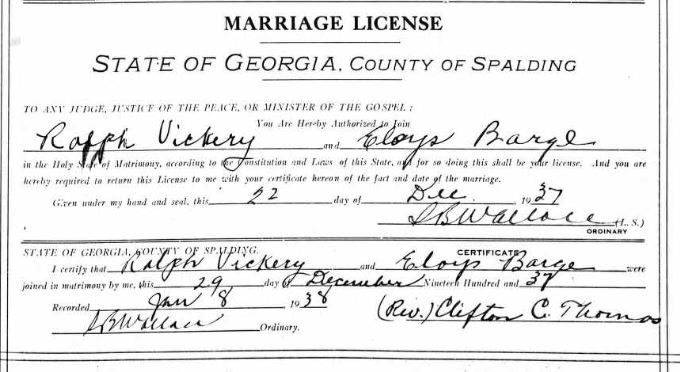 MARRIAGE LICENSE
STATE OF GEORGIA, COUNTY OF SPALDING
TO ANY JUDGE, JUSTICE OF THE PEACE, OR MINISTER OF THE GOSPEL:
You Are Hereby Authorized to Join
Ralph Vickery and Eloys Barge
in the Holy State of Matrimony, according to the Constitution and Laws of this State, and for so doing this shall be your license. And you are
hereby required to return this License to me with your certificate hereon of the fact and date of the marriage.
Given under my hand and seal, this 22 day of Dec 1937
S B Wallace (L. S.)
ORDINARY
CERTIFICATE
STATE OF GEORGIA, COUNTY OF SPALDING.
I certify that Ralph Vickery and Eloys Barge were
joined in matrimony by me, this 29 day of December Nineteen Hundred and 37
Recorded Jan 8 1938 (Rev.) Clifton C. Thomas
S B Wallace Ordinary.